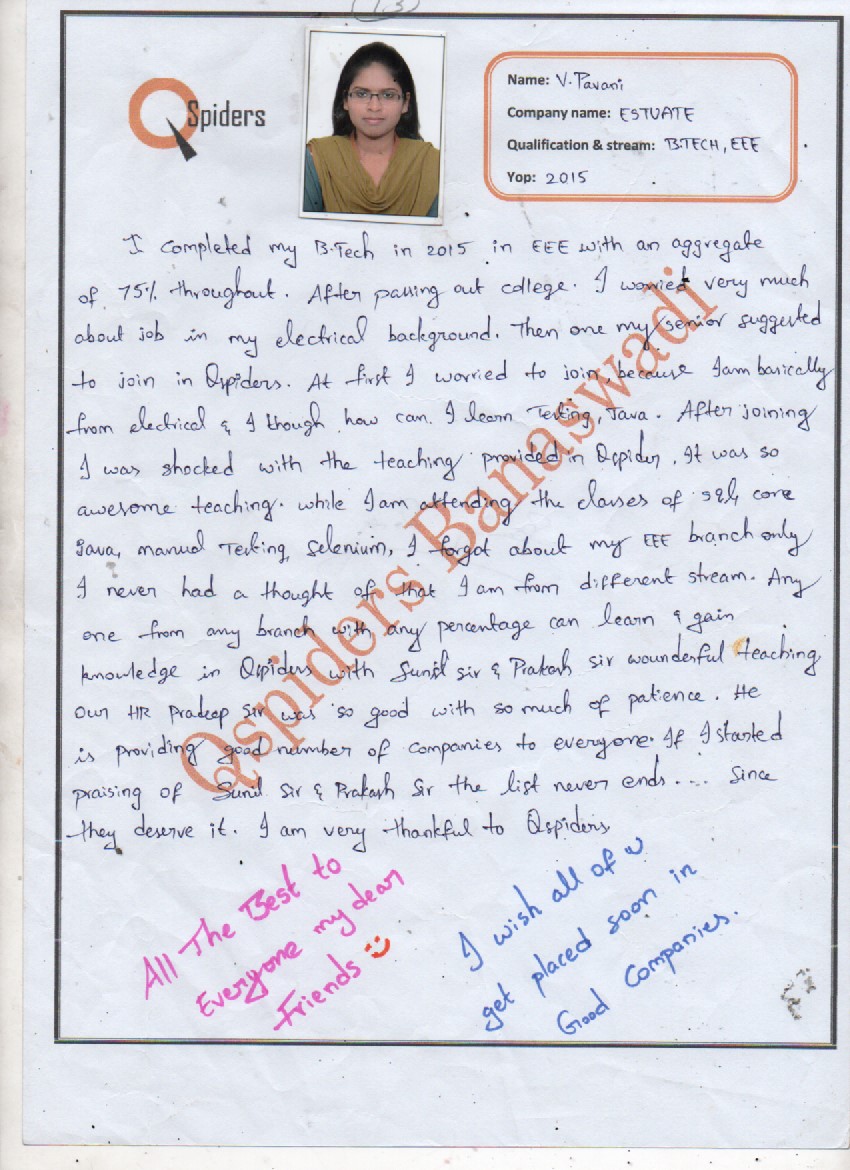 13
QSpiders
Name: V. Pavani
Company name: ESTUATE
Qualification & stream: B.TECH, EEE
Yop: 2015
I completed my B.Tech in 2015 in EEE with an aggregate
of 75% throughout. After passing out college. I worried very much
about job in my electrical background. Then one my senior suggested
to join in Qspiders. At first I worried to join, because I am basically
from electrical & I though how can I learn Testing, Java. After joining
I was shocked with the teaching provided in Qspider. It was so
awesome teaching. while I am attending the classes of sql, core
Java, manual Testing, Selenium, I forgot about my EEE branch only
I never had a thought of that I am from different stream. Any
one from any branch with any percentage can learn & gain
knowledge in Qspiders with Sunil sir & Prakash sir wounderful teaching
Our HR Pradeep Sir was so good with so much of patience. He
is providing good number of companies to everyone. If I started
praising of Sunil Sir & Prakash Sir the list never ends.... Since
they deserve it. I am very thankful to Qspiders
Qspiders Banaswadi
All The Best to
Everyone my dear
Friends
I wish all of u
get placed soon in
Good Companies.